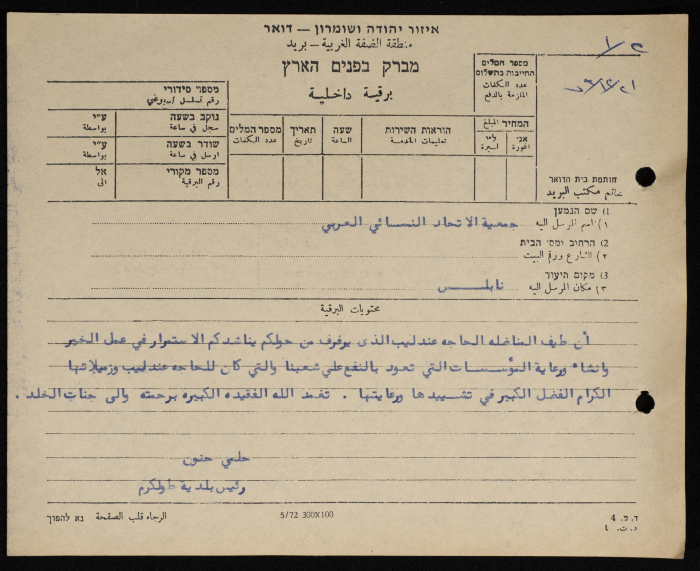 איזור יהודה ושומרון – דואר
منطقة الضفة الغربية – بريد
מברק בפנים הארץ
برقية داخلية
٢/١
מספר המלים
החייבות בתשלום
عدد الكلمات
الملزمة بالدفع
המחיר المبلغ
אג׳
اغورة
ل״י
ليرة
הוראות השירות
تعليمات الخدمة
שעה
الساعة
תאריך
تاريخ
מספר המלים
عدد الكلمات
מספר סידורי
رقم تسلسل اسبوعي
נוקב בשעה
سجل في ساعة
ע״י
بواسطة
שודר בשעה
ارسل في ساعة
ע״י
بواسطة
מספר מקורי
رقم البرقية
אל
الى
חותמת בית הדואר
خاتم مكتب البريد
1) שם הנמען
١) اسم المرسل اليه جمعية الاتحاد النسائي العربي
2) הרחוב ומס׳ הבית
٢) الشارع ورقم البيت
3) מקום היעוד
٣) مكان المرسل اليه نابلس
محتويات البرقية
أن طيف المناضله الحاجه عندليب الذى يرفرف من حولكم يناشدكم الاستمرار في عمل الخير
وانشاء ورعاية المؤسسات التي تعود بالنفع على شعبنا والتي كان للحاجه عندليب وزميلاتها
الكرام الفضل الكبير في تشييدها ورعايتها . تغمد الله الفقيده الكبيره برحمته والى جنات الخلد .
حلمي حنون
رئيس بلدية طولكرم
ד.פ. 4
د.ت. ٤
5/72 300X100
الرجاء قلب الصفحة נא להפוך